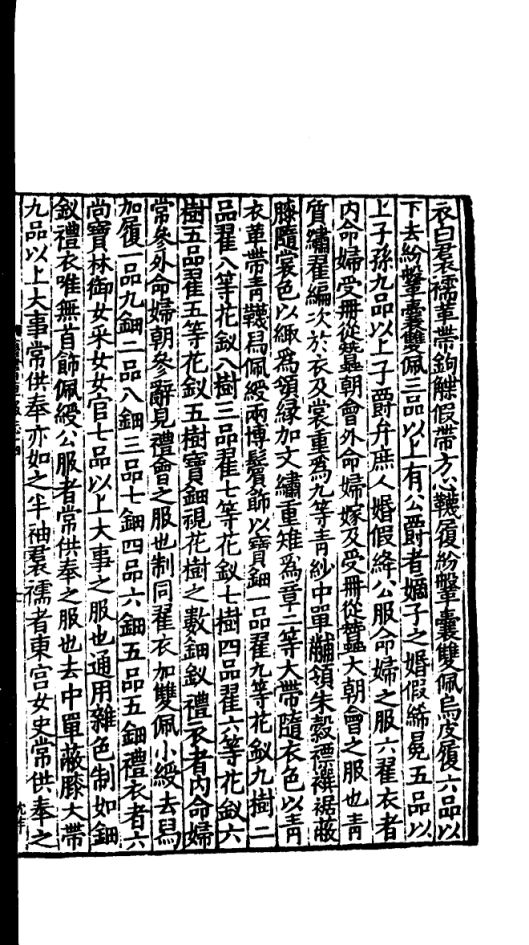 衣白裙襦革帶鉤䚢假帶方心韈履紛鞶囊雙佩烏皮履六品以
下去紛鞶囊雙佩三品以上有公爵者嫡子之婚假絺冕五品以
上子孫九品以上子爵弁庶人婚假絳公服命婦之服六翟衣者
内命婦受冊從蠶朝會外命婦嫁及受冊從蠶大朝會之服也青
質繡翟編次於衣及裳重爲九等青紗中單黼領朱縠褾襈裾蔽
膝隨裳色以緅爲領緣加文繡重雉爲章二等大帶隨衣色以青
衣革帶青韈舄佩綬兩博鬢飾以寶鈿一品翟九等花釵九樹二
品翟八等花釵八樹三品翟七等花釵七樹四品翟六等花釵六
樹五品翟五等花釵五樹寶鈿視花樹之數鈿釵禮衣者内命婦
常參外命婦朝參辭見禮會之服也制同翟衣加雙佩小綬去舄
加履一品九鈿二品八鈿三品七鈿四品六鈿五品五鈿禮衣者六
尚寶林御女采女女官七品以上大事之服也通用雜色制如鈿
釵禮衣唯無首飾佩綬公服者常供奉之服也去中單蔽膝大帶
九品以上大事常供奉亦如之半袖裙襦者東宫女史常供奉之